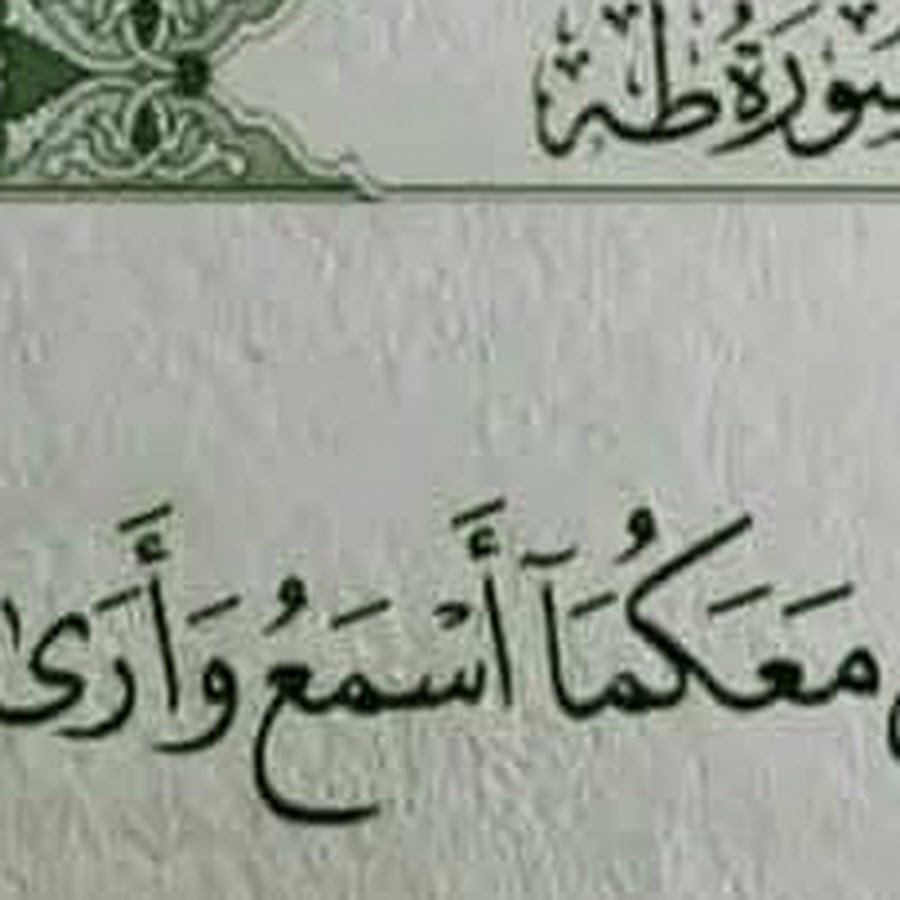 سُورَةُ طه
مَعَكُمَآ أَسْمَعُ وَأَرَىٰ